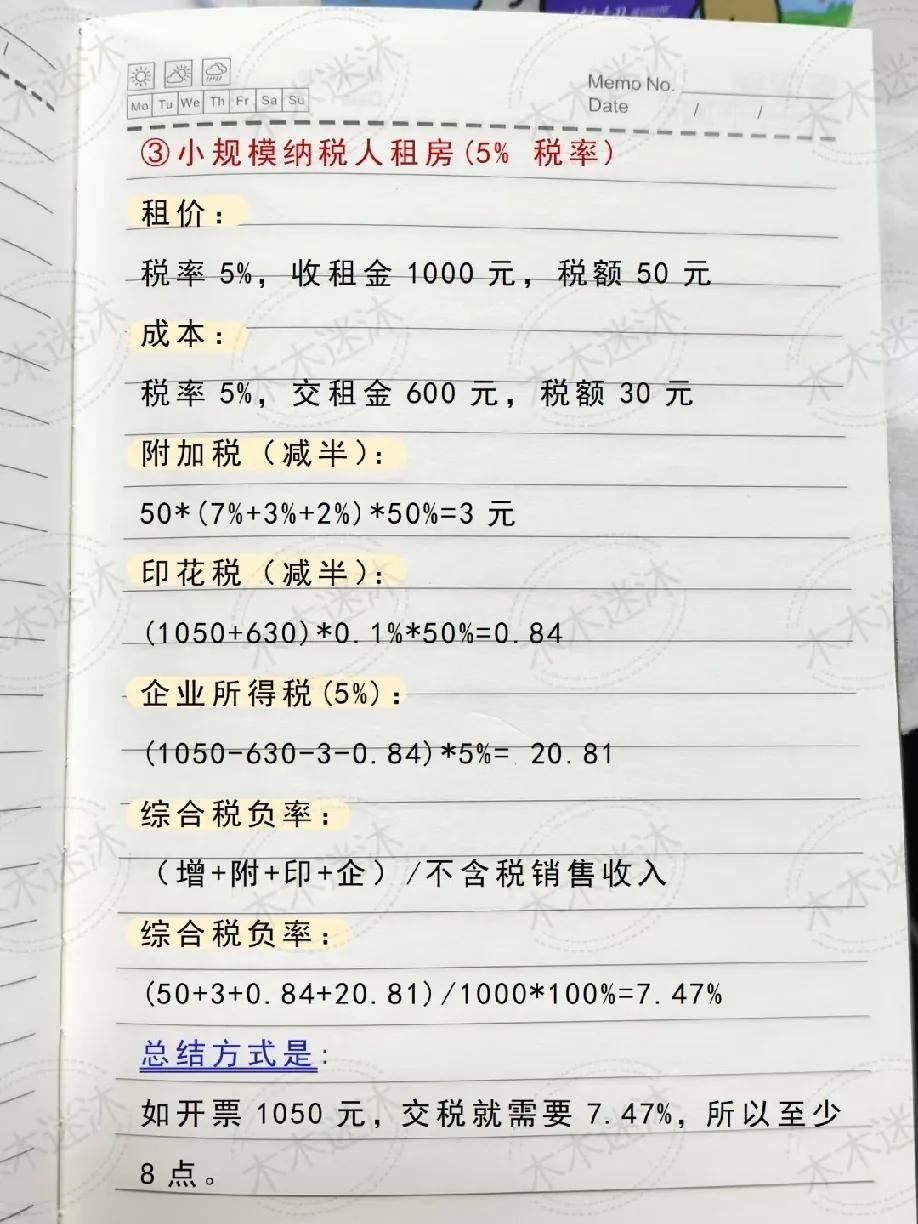 Mo Tu We Th Fr Sa Su
Memo No.
Date / /
③小规模纳税人租房(5% 税率)
租价:
税率 5%, 收租金 1000 元, 税额 50 元
成本:
税率 5%, 交租金 600 元, 税额 30 元
附加税（减半):
50*(7%+3%+2%)*50%=3 元
印花税（减半):
(1050+630)*0.1%*50%=0.84
企业所得税(5%):
(1050-630-3-0.84)*5%= 20.81
综合税负率:
（增+附+印+企）/不含税销售收入
综合税负率:
(50+3+0.84+20.81)/1000*100%=7.47%
总结方式是:
如开票 1050 元, 交税就需要 7.47%, 所以至少
8 点。
木木迷沐